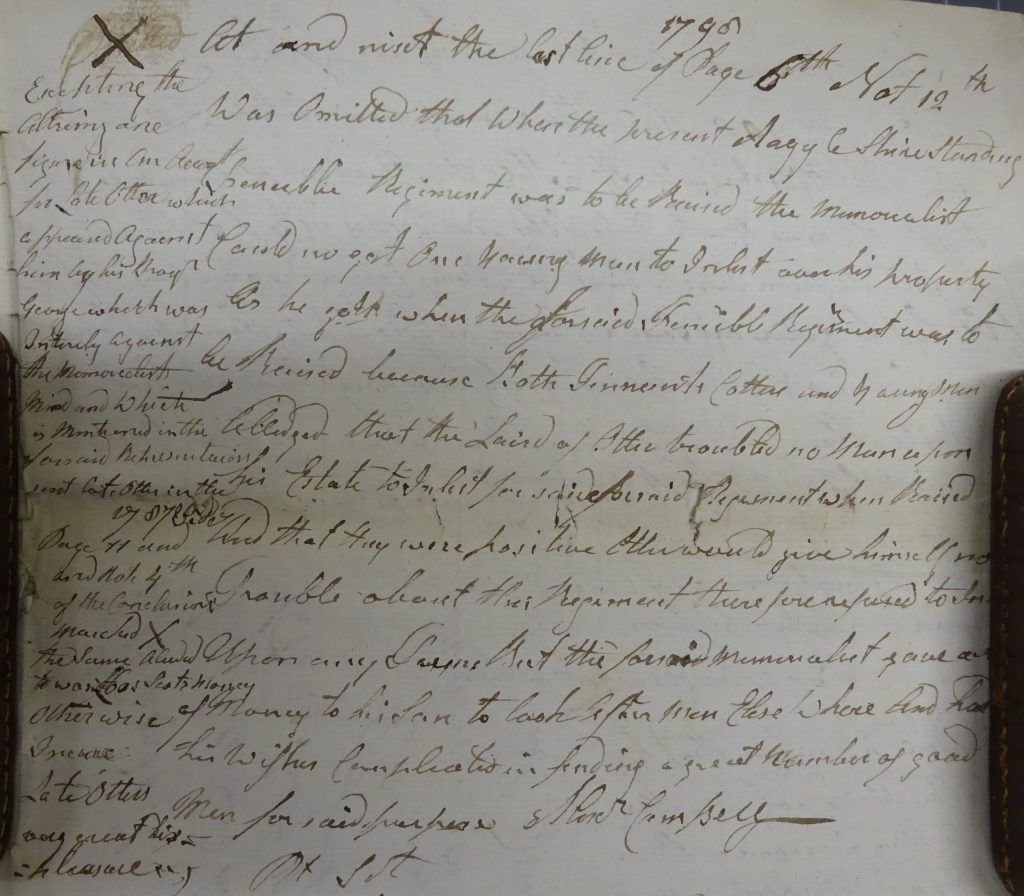 1798
At and nixt the last line of Page 6th Not 12th
Was Omitted that When the present Argyle Shire Standing
Fenceible Regiment was to be Raised the Memorialist
Could no got One Young Man to Inlist over his property
As he got when the forsaid Fencible Regiment was to
be Raised because Both Tennents Cotters and Young Men
Alledged that the Laird of Otter troubled no Man upon
his Estate to Inlist for said forsaid Regiment when Raised
And that they were positive Otter would give himself no
Trouble about this Regiment therefore refused to In
Upon any Terms But the forsaid Memorialist gave
of Money to his Son to look After Men Else Where And had
his Wishes Compleated in finding a great Number of good
Men for said purpose Campbell
X
Excepting the
figure in
for Late Otter which
appeared Against
him by his
George which was
Intirely against
the Memorialists
Mind and Which
is Mentioned in the
forsaid Representation
sent Late Otter in the
1787
Page 11 and
and Note 4th
of the Conclusion
Marked X
the Same
to was Scots Money
Otherwise
Late Otters
very great dis-
-pleasure